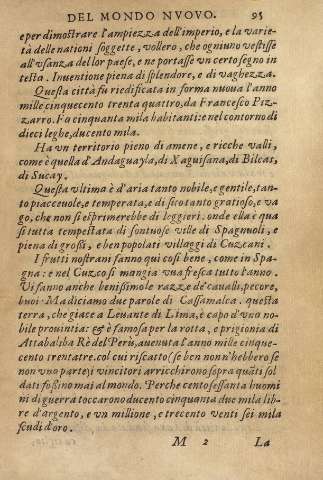 DEL MONDO NVOVO. 95
e per dimostrare l'ampiezza dell'imperio, e la varie-
tà delle nationi soggette, vollero, che ogniuno vestisse
all'vsanza del lor paese, e ne portasse vn certo segno in
testa. Inuentione piena di splendore, e di vaghezza.
Questa città fu riedificata in forma nuoua l'anno
mille cinquecento trenta quattro, da Francesco Piz-
zarro. Fa cinquanta mila habitanti: e nel contorno di
dieci leghe, ducento mila.
Ha vn territorio pieno di amene, e ricche valli,
come è quella d'Andaguayla, di Xaguisana, di Bilcas,
di Sucay.
Questa vltima è d'aria tanto nobile, e gentile, tan-
to piaceuole, e temperata, e di sito tanto gratioso, e va
go, che non si esprimerebbe di leggieri. onde ella è qua
si tutta tempestata di sontuose ville di Spagnuoli, e
piena di grossi, e ben popolati villaggi di Cuzcani.
I frutti nostrani fanno qui così bene, come in Spa-
gna: e nel Cuzco si mangia vua fresca tutto l'anno.
Vi fanno anche benissimo le razze de' caualli, pecore,
buoi. Ma diciamo due parole di Cassamalca. questa
terra, che giace a Leuante di Lima, è capo d'vna no-
bile prouintia: & è famosa per la rotta, e prigionia di
Attabaliba Rè del Perù, auenuta l'anno mille cinque-
cento trentatre. col cui riscatto (se ben non n'hebbero se
non vna parte) i vincitori arricchirono sopra quāti sol
dati fossino mai al mondo. Perche cento sessanta huomi
ni di guerra toccarono ducento cinquanta due mila lib-
bre d'argento, e vn millione, e trecento venti sei mila
scudi d'oro.
M 2 La